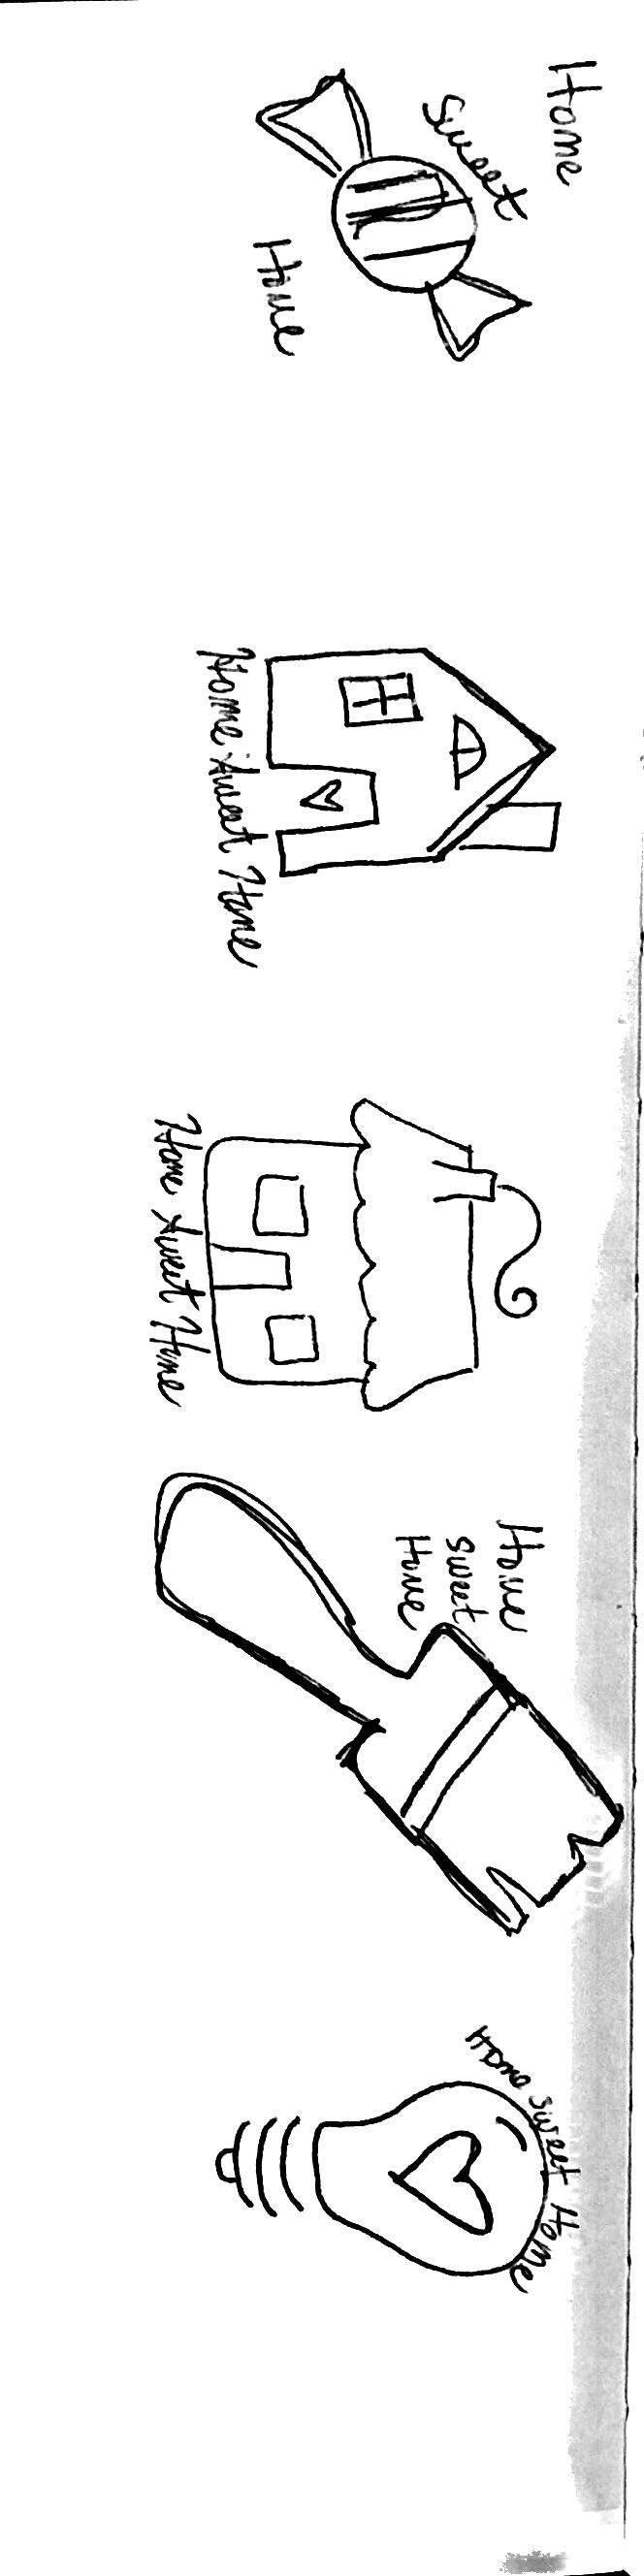 Home
Sweet
Home
Home Sweet Home
Home Sweet Home
Home
sweet
Home
Home sweet Home